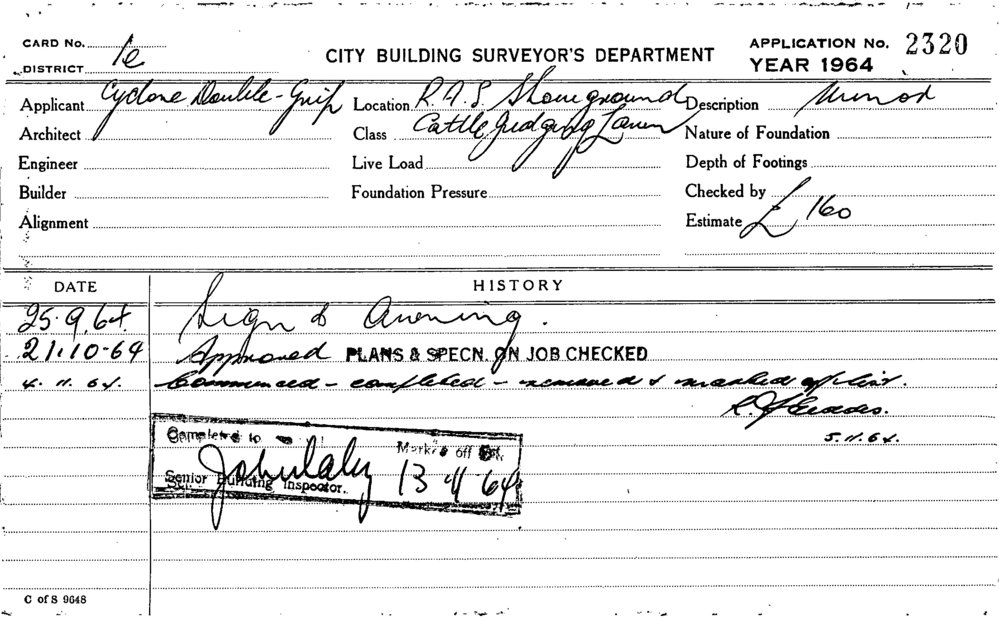 CARD No. 1e
DISTRICT
CITY BUILDING SURVEYOR'S DEPARTMENT
APPLICATION No. 2320
YEAR 1964
Applicant Cyclone Double-Grip Location R.A.S Showground Description Minor
Architect Class Cattle Judging Lawn Nature of Foundation
Engineer Live Load Depth of Footings
Builder Foundation Pressure Checked by
Alignment Estimate £ 160
DATE HISTORY
25.9.64. Sign & Awning.
21.10-64 Approved PLANS & SPECN. ON JOB CHECKED
4.11.64. Commenced - completed - removed & marked off list.
5.11.64.
Completed to Marked off list.
13 11 64
Senior Building Inspector.
C of S 9648